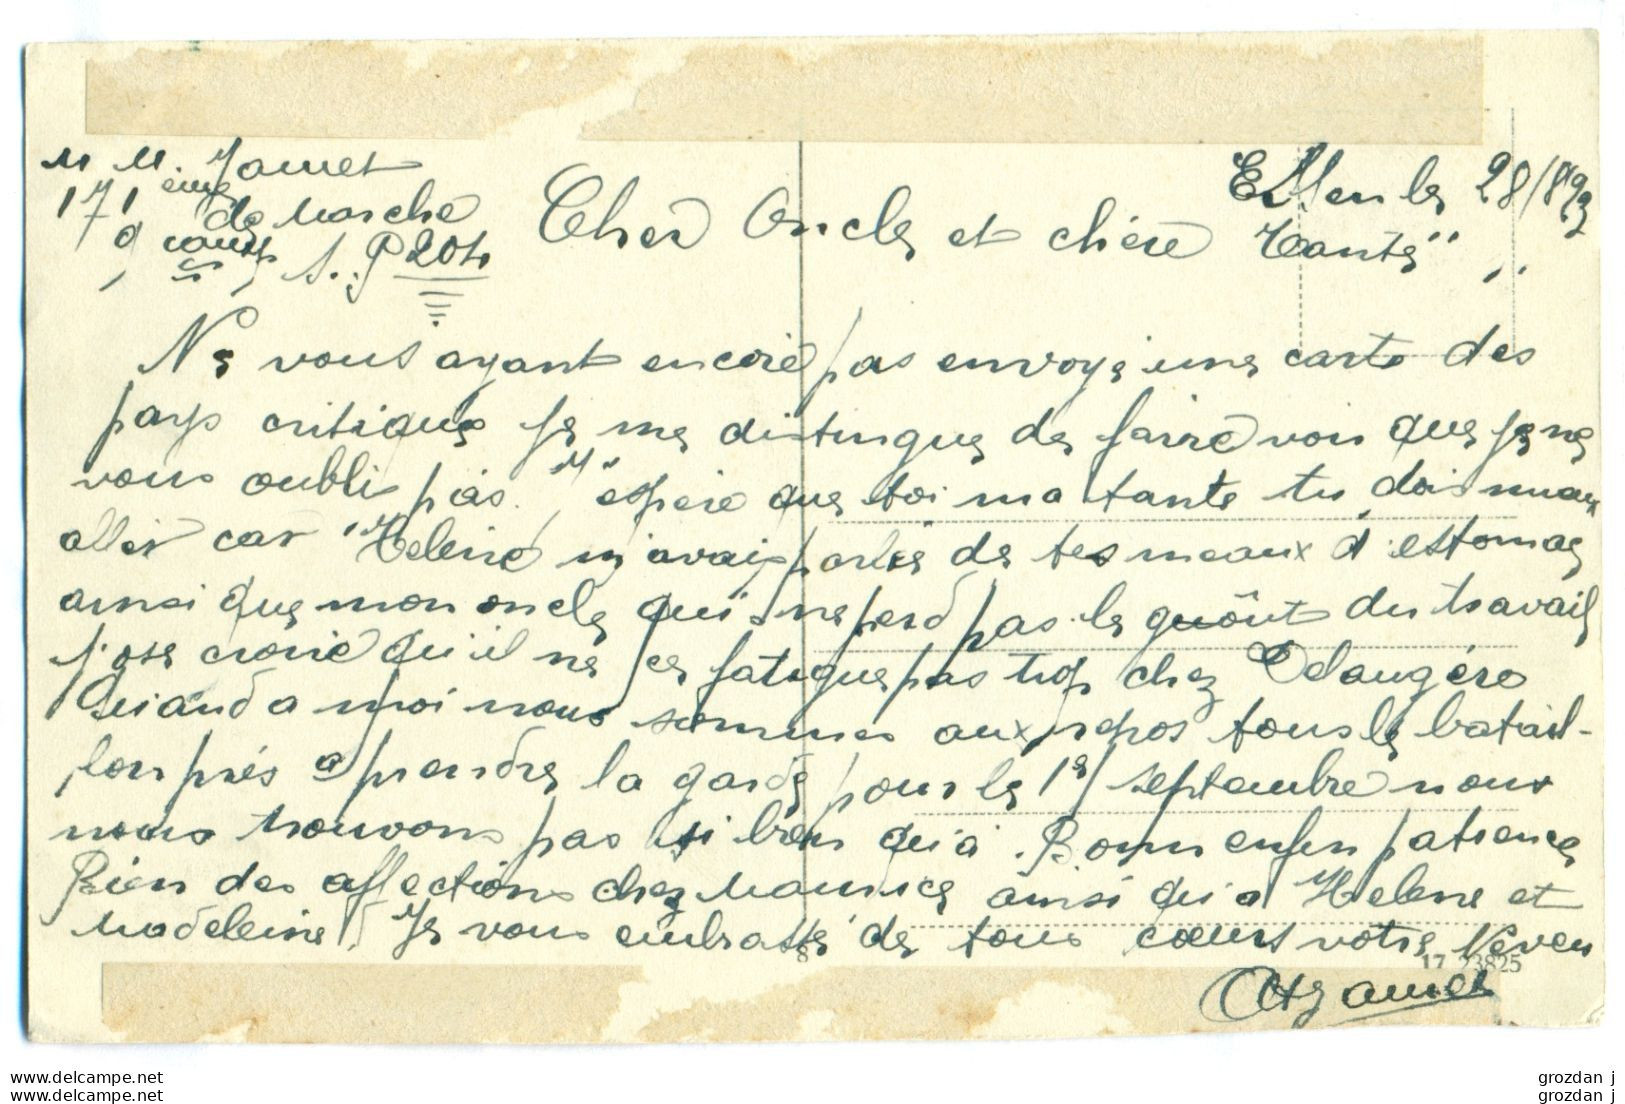 M M. Jamet
171 ème
de Marche
9 comp
S. P 204
Essen le 28/8/23
Cher Oncle et chère Tante"
Ne vous ayant encore pas envoyé une carte des
pays critique je me distingue de faire voir que je ne
vous oubli pas. "J" espère que toi ma tante tu dois mieux
aller car Helene m'avais parlée de tes meaux d'estomac
ainsi que mon oncle qui ne perd pas le goût du travail
j'ose croire qu'il ne ce fatigue pas trop chez Delaugère
Quand a moi nous sommes aux repos tous le batail-
lon près a prendre la garde pour le 1er septembre nous
nous trouvons pas si bien qu'à Bonn enfin patience
Bien des affections chez Maurice ainsi qu'a Helene et
Madeleine. Je vous embrasse de tous coeurs votre Neveu
Jamet
8
17 23825
www.delcampe.net
www.delcampe.net
grozdan j
grozdan j